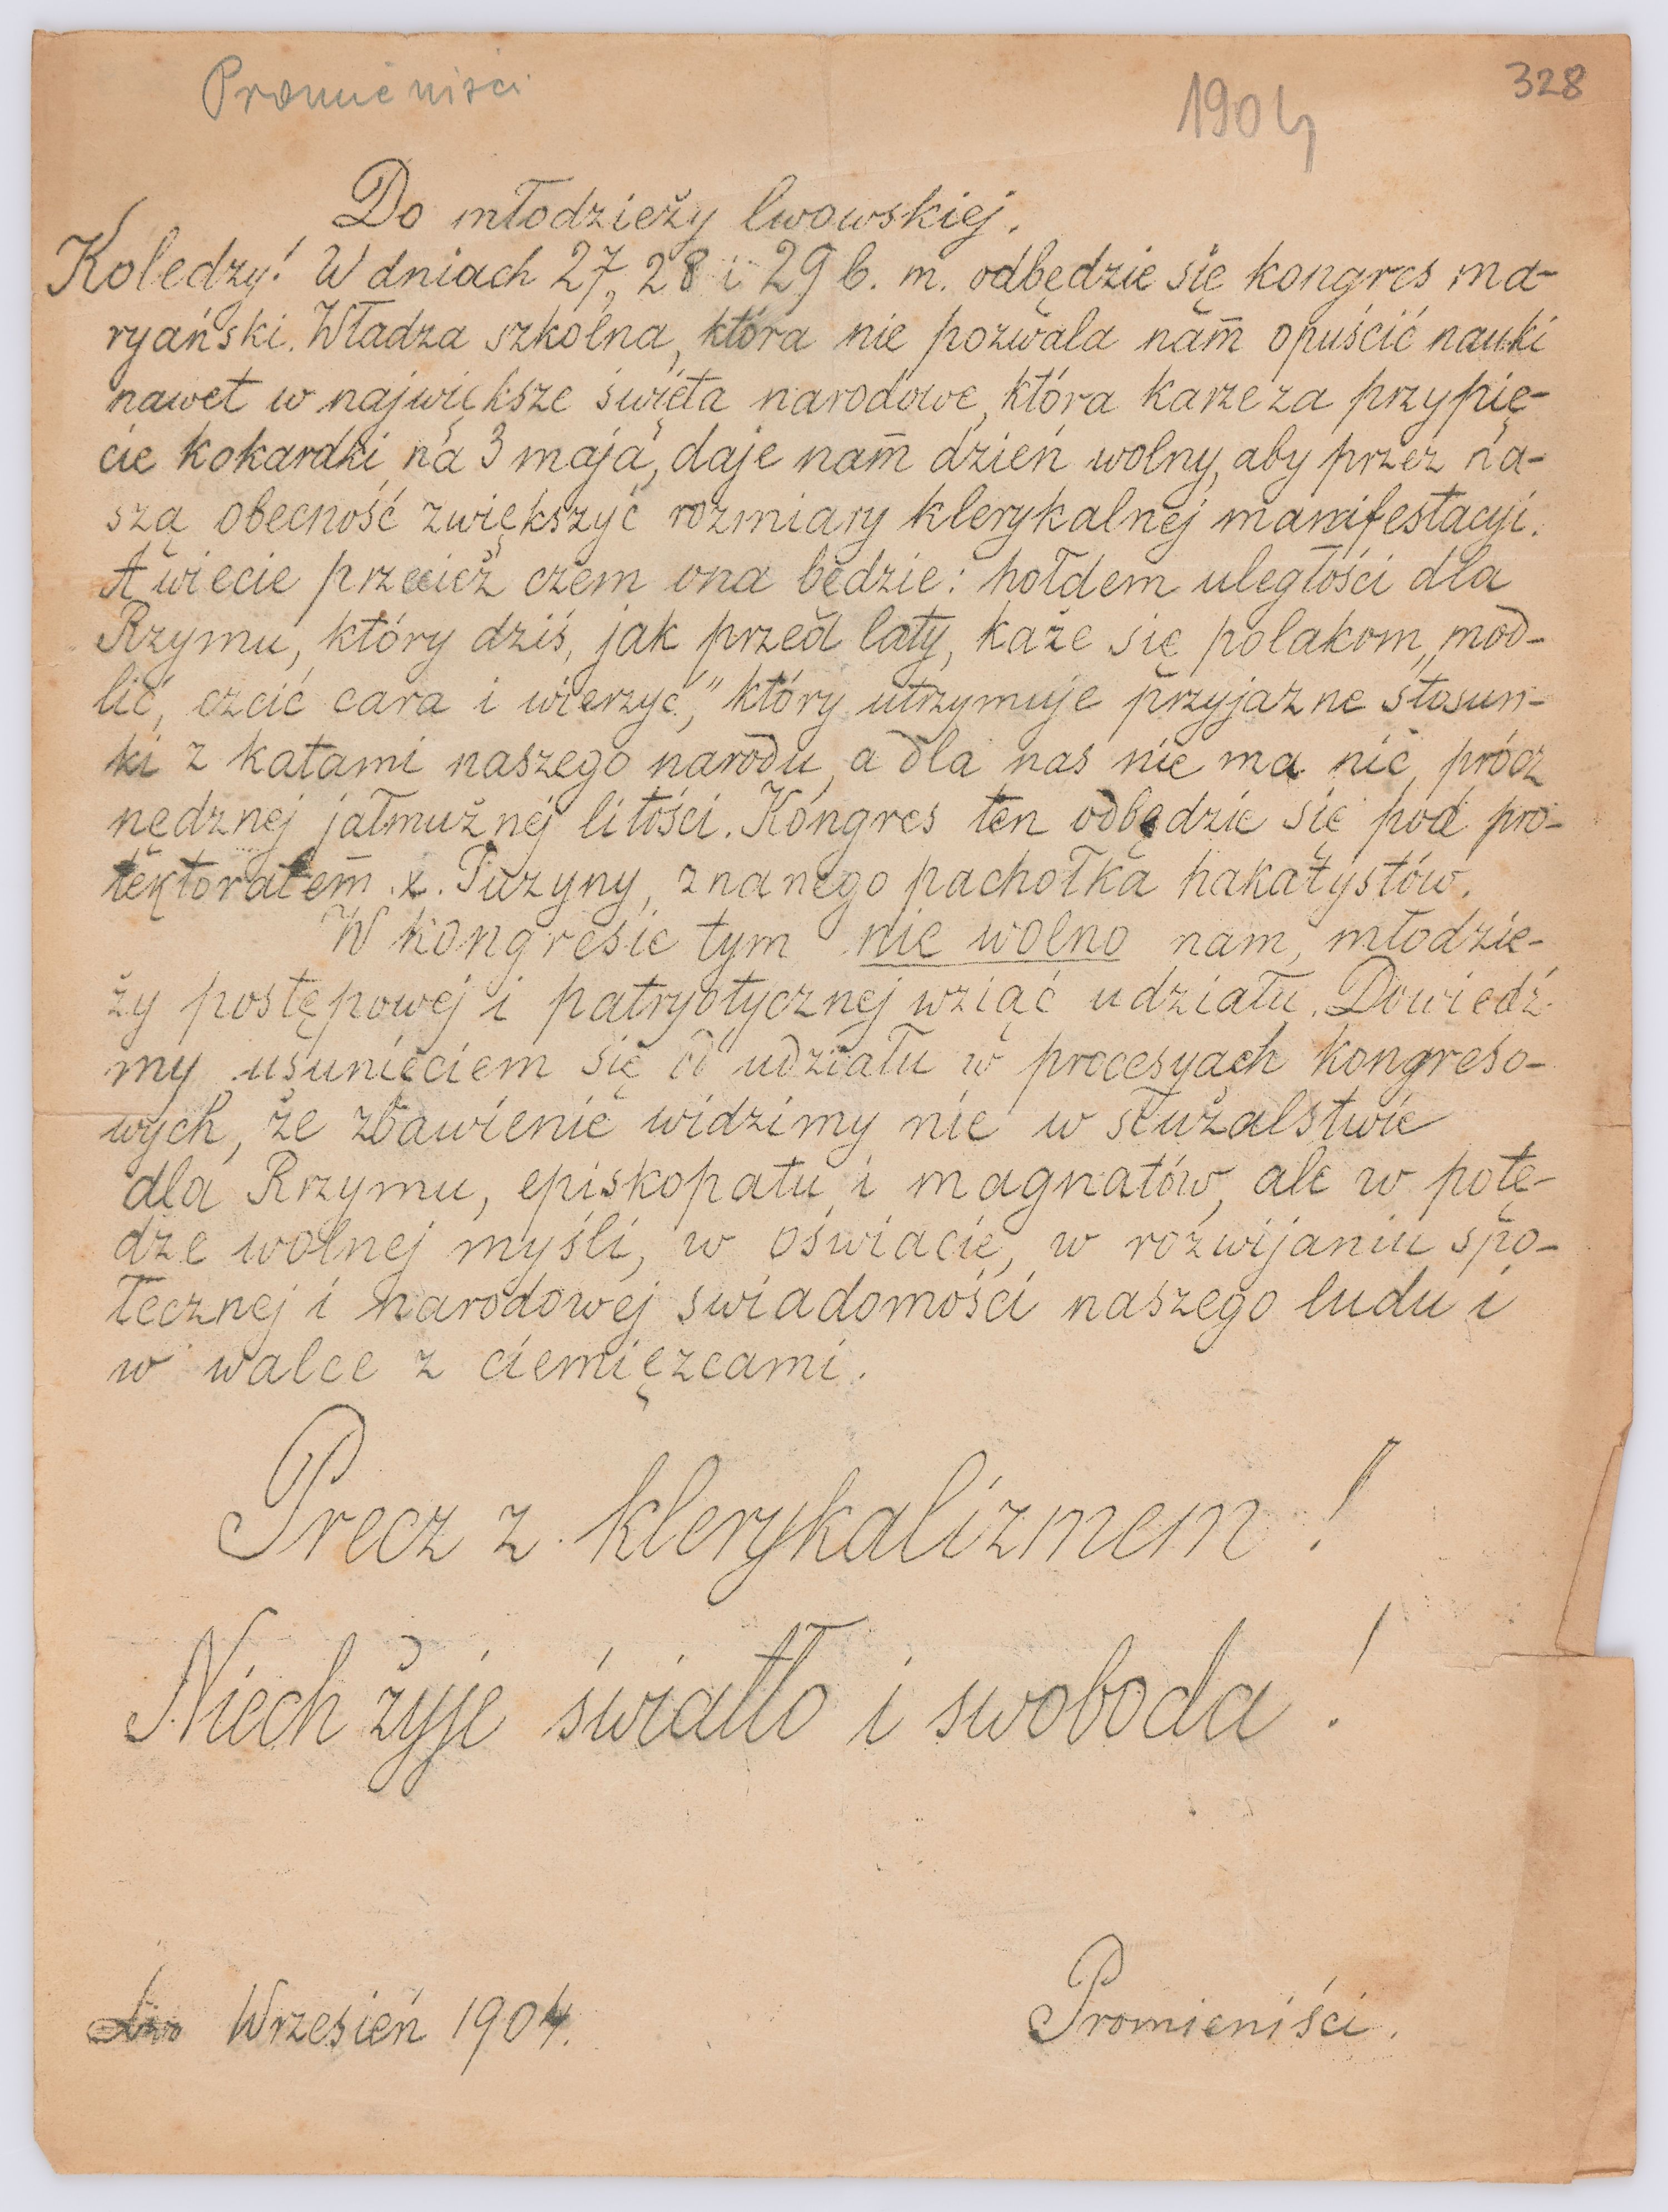 Promieniści
1904
328
Do młodzieży lwowskiej.
Koledzy! W dniach 27, 28 i 29 b. m. odbędzie się kongres ma-
ryański. Władza szkolna, która nie pozwala nam opuścić nauki
nawet w największe święta narodowe, która karze za przypię-
cie kokardki na 3 maja, daje nam dzień wolny, aby przez na-
szą obecność zwiększyć rozmiary klerykalnej manifestacyi.
A wiecie przecież czem ona będzie: hołdem uległości dla
Rzymu, który dziś, jak przed laty, każe się polakom „mod-
lić, czcić cara i wierzyć," który utrzymuje przyjazne stosun-
ki z katami naszego narodu, a dla nas nie ma nic, prócz
nędznej jałmużnej litości. Kongres ten odbędzie się pod pro-
tektoratem x. Puzyny, znanego pachołka hakatystów.
W kongresie tym nie wolno nam, młodzie-
ży postępowej i patryotycznej wziąć udziału. Dowiedź-
my usunięciem się od udziału w procesyach kongreso-
wych, że zbawienie widzimy nie w służalstwie
dla Rzymu, episkopatu i magnatów, ale w potę-
dze wolnej myśli, w oświacie, w rozwijaniu spo-
łecznej i narodowej swiadomości naszego ludu i
w walce z ciemięzcami.
Precz z klerykalizmem!
Niech żyje światło i swoboda!
Wrzesień 1904.
Promieniści.